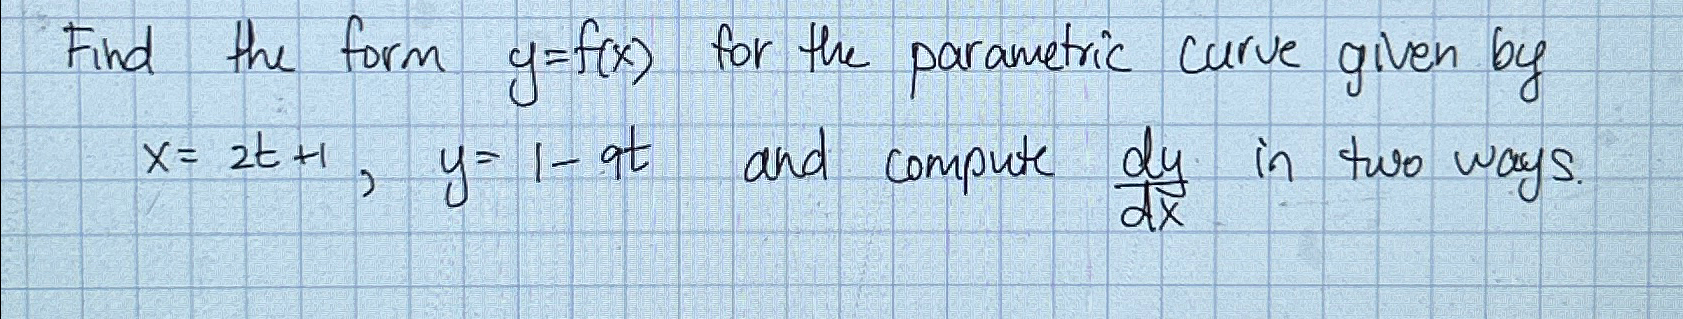 Find the form y=f(x) for the parametric curve given by
x= 2t+1, y= 1-9t and compute dy/dx in two ways.